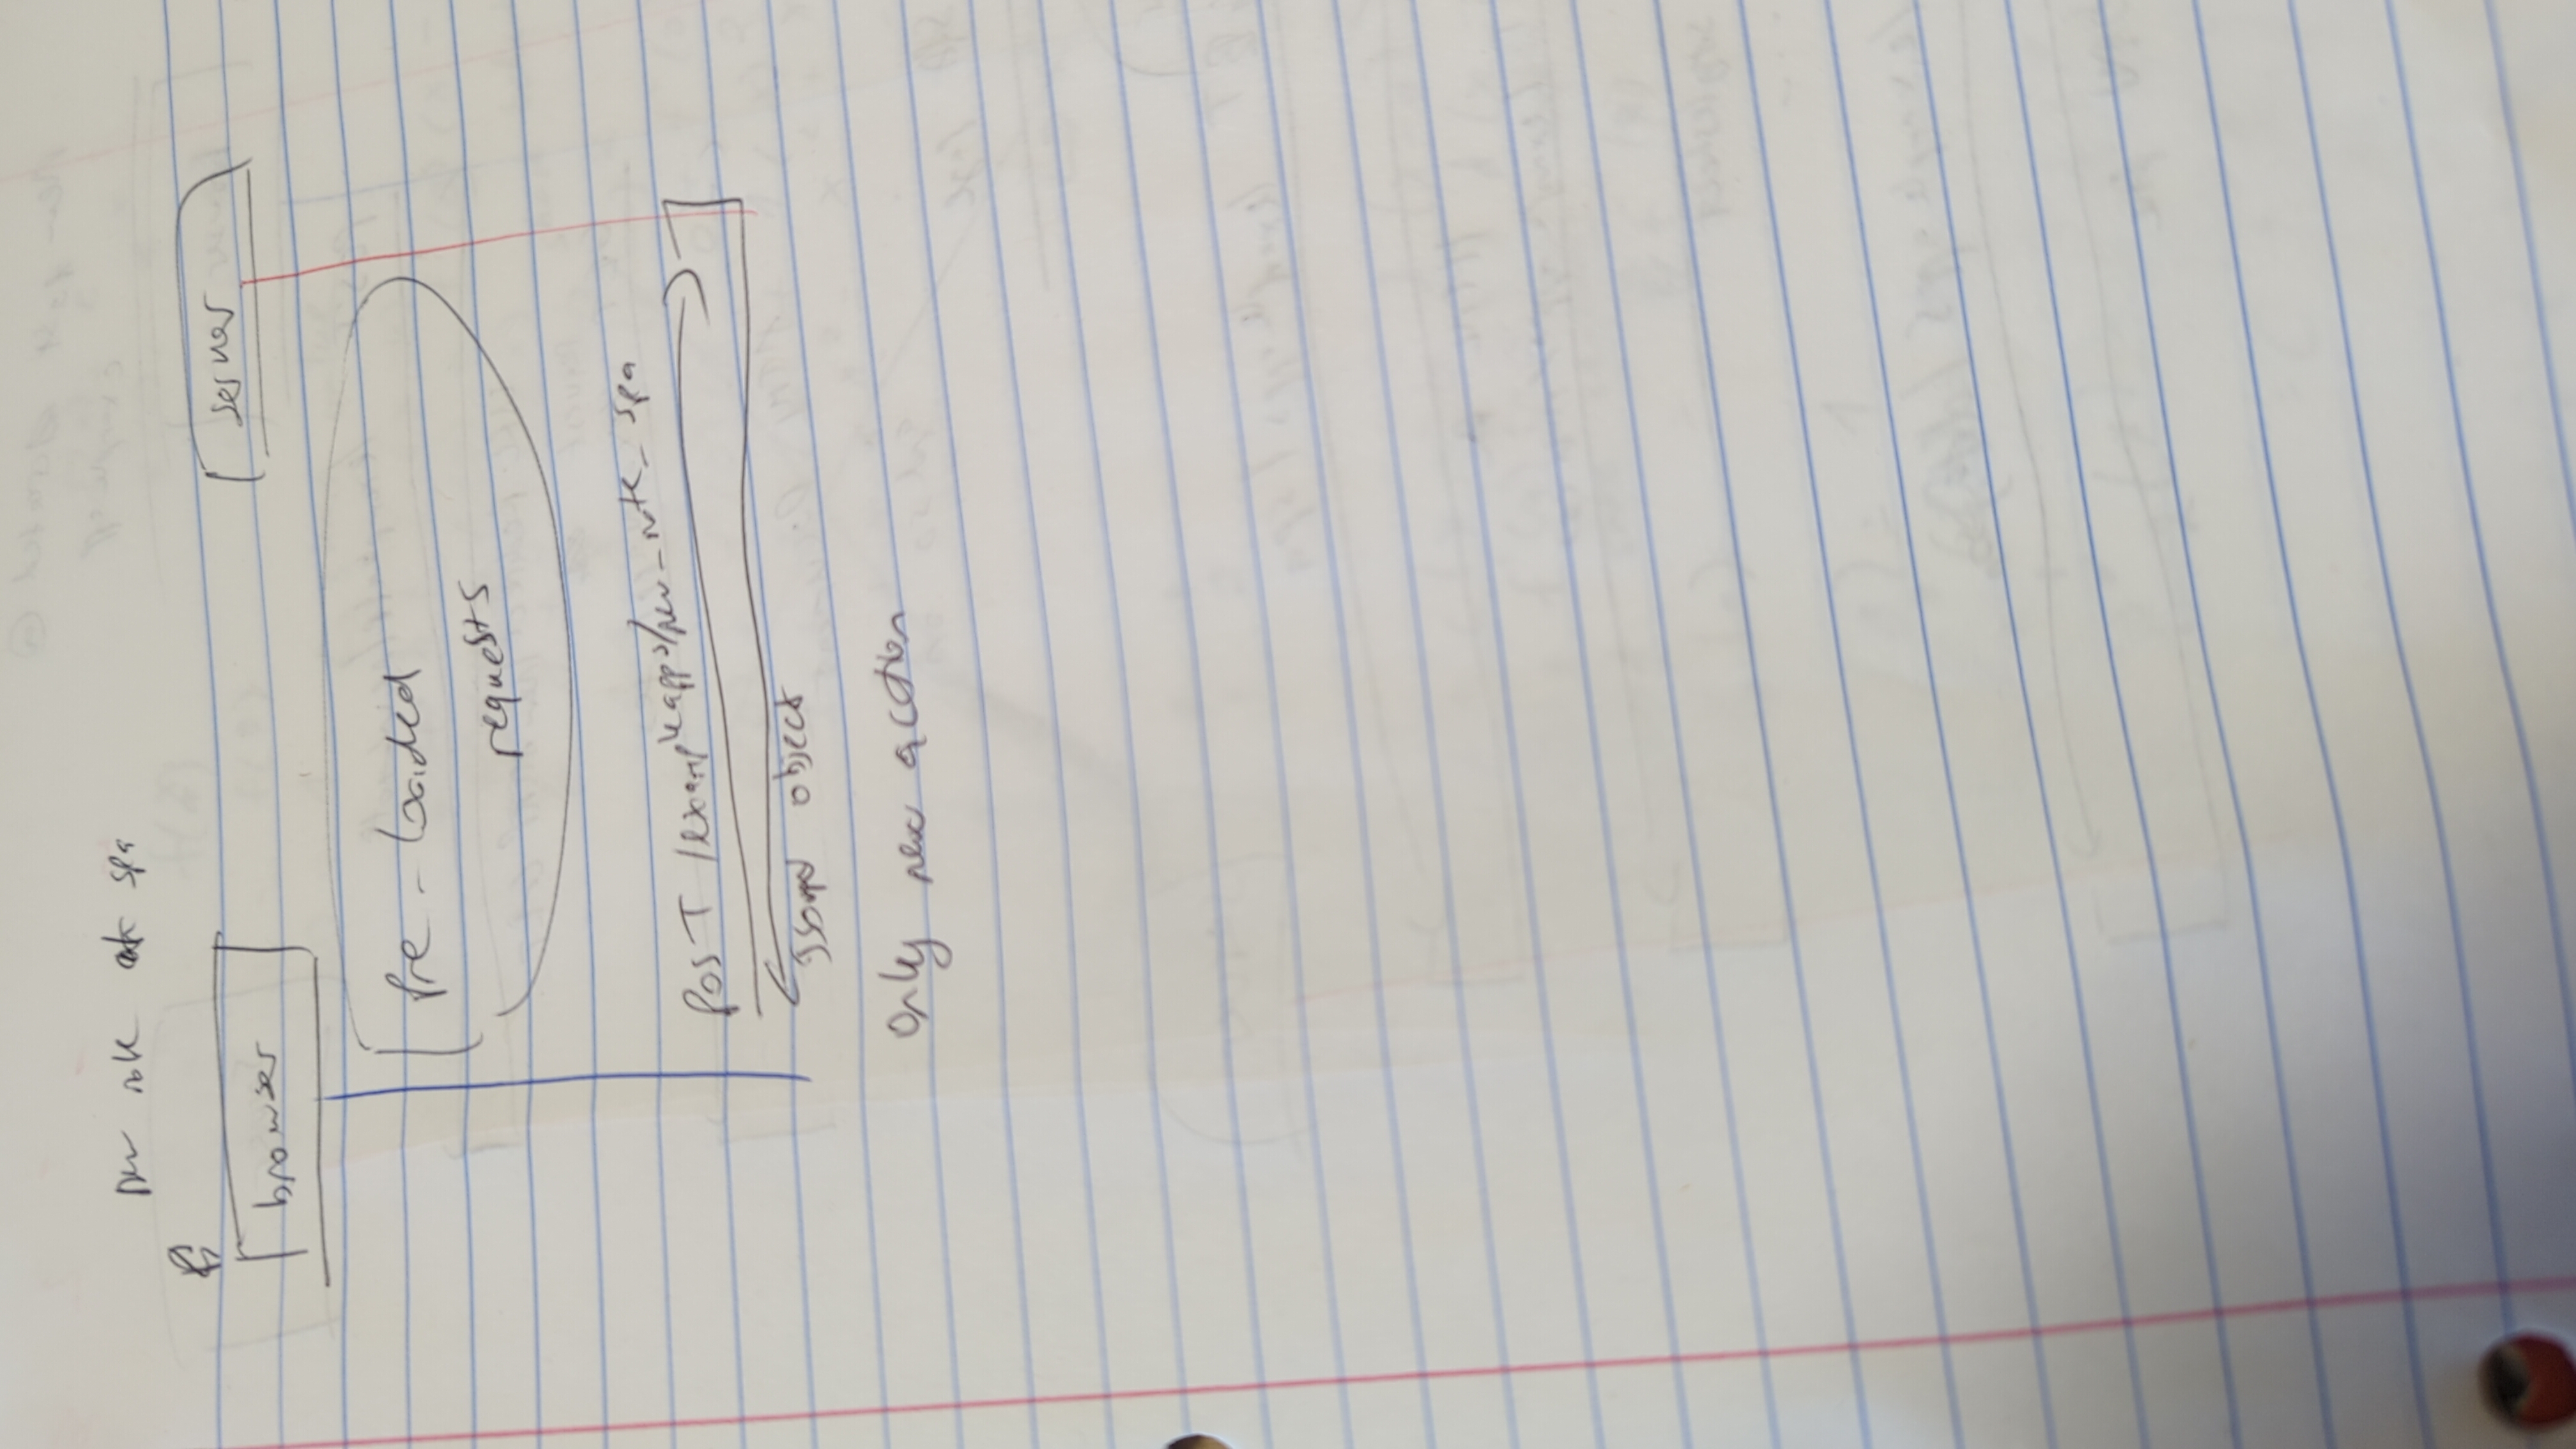 new note at spa
browser
server
Pre-loaded
requests
POST /exampleapps/new_note_spa
object
Only new action